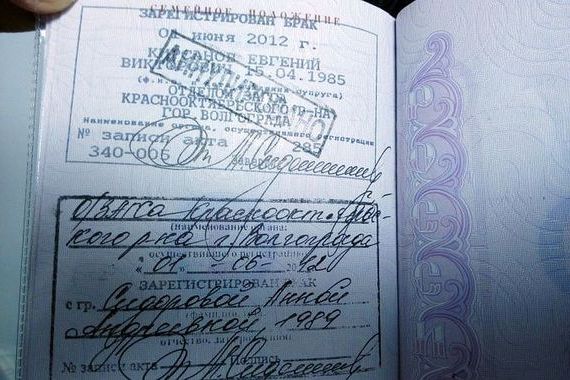 СЕМЕЙНОЕ ПОЛОЖЕНИЕ
ЗАРЕГИСТРИРОВАН БРАК
01 июня 2012 г.
ЕВГЕНИЙ
15.04.1985
ОТДЕЛОМ
КРАСНООКТЯБРЬСКОГО Р-НА
ГОР. ВОЛГОГРАДА
Наименование органа, осуществившего регистрации
№ записи акта 285
340-006 Заверено
О/ЗАГСа Краснооктябрьс-
кого р-на г. Волгограда
(наименование органа:
осуществившего регистрацию)
"01" - 06 - 2012
ЗАРЕГИСТРИРОВАН БРАК
с гр. Сидоровой Анной
Андреевной, 1989
отчество, дата рождения
№ записи акта Подпись